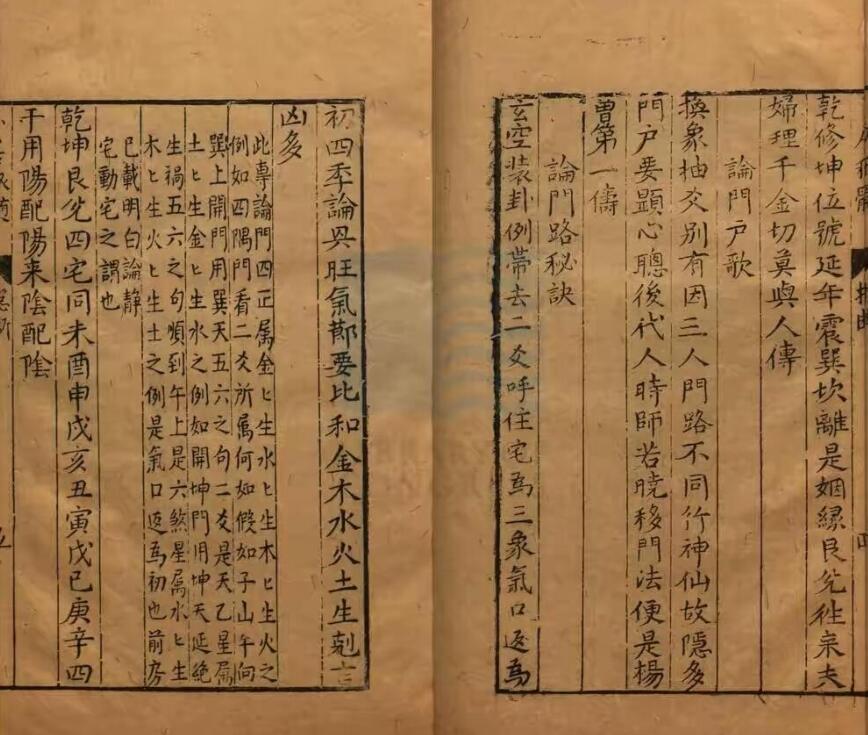 乾修坤位號延年震巽坎離是姻緣艮兌徃来夫
婦理千金切莫與人傳
論門户歌
換象抽爻别有因三人門路不同行神仙故隱多
門户要顕心聰後代人時師若曉移門法便是楊
曽第一儔
論門路秘訣
玄空装卦例帶去二爻呼住宅為三象氣口返為
初四季論旺氣莭要比和金木水火土生剋言
凶多
此專論門四正属金ヒ生水ヒ生木ヒ生火之
例如四隅門看二爻所属何如假如子山午向
巽上開門用巽天五六之句二爻是天乙星属
土ヒ生金ヒ生水之例如開坤門用坤天延絶
生禍五六之句順到午上是六煞星属水ヒ生
木ヒ生火ヒ生土之例是氣口返為初也前
已載明白論静
宅動宅之謂也
乾坤艮兌四宅同未酉申戌亥丑寅戊己庚辛四
干用陽配陽来陰配陰